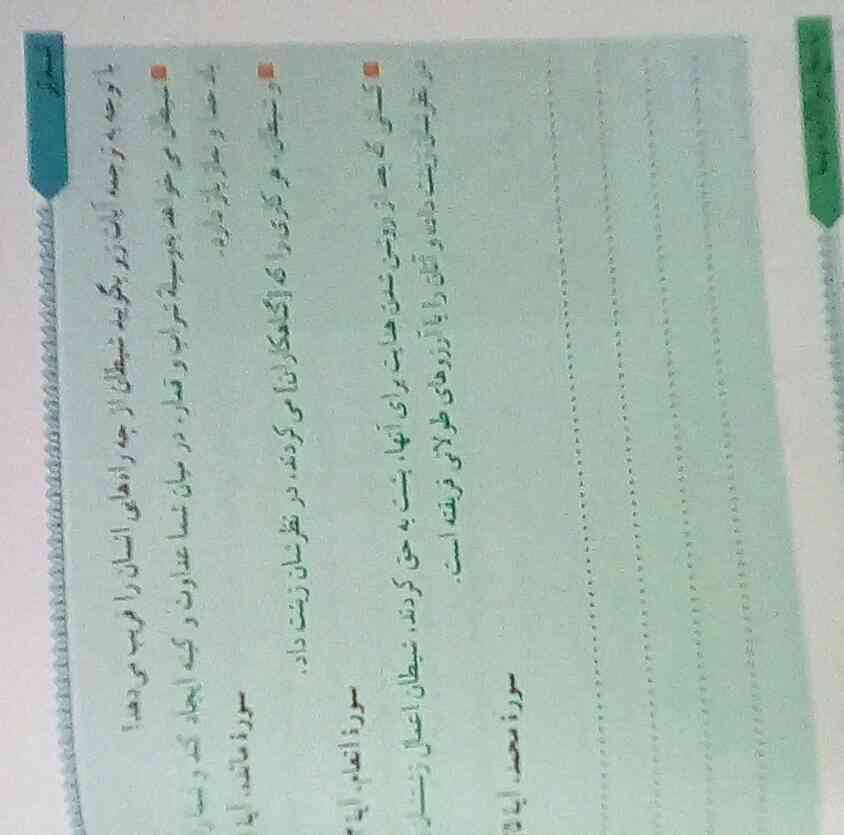 با توجه به ترجمه آیات زیر بگویید شیطان از چه راه‌هایی انسان را فریب می‌دهد؟
شیطان می‌خواهد به‌وسیلهٔ شراب و قمار، در میان شما عداوت و کینه ایجاد کند و شما را
یاد خدا و نماز باز دارد.
سورهٔ مائده، آیهٔ
و شیطان، هر کاری را که [گناهکاران] می‌کردند، در نظرشان زینت داد.
سورهٔ انعام، آیهٔ
کسانی که بعد از روشن شدن هدایت برای آنها، پشت به حق کردند، شیطان اعمال زشتشان
در نظرشان زینت داده و آنان را با آرزوهای طولانی فریفته است.
سورهٔ محمد، آیهٔ